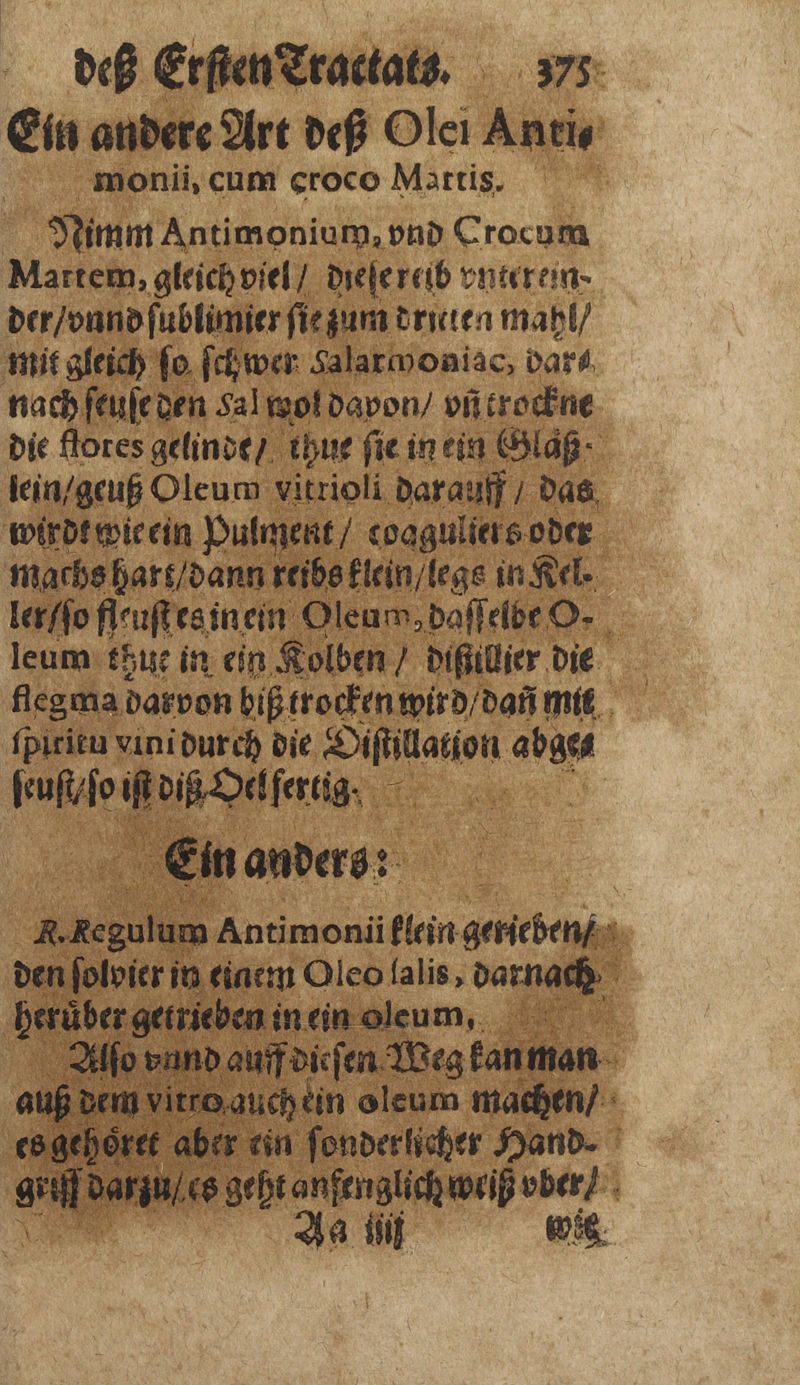 deß Ersten Tractats. 375
Ein andere Art deß Olei Anti-
monii, cum croco Martis.
Nimm Antimonium, vnd Crocum
Martem, gleich viel / diese reib vnterein-
der/vnnd sublimier sie zum dritten mahl/
mit gleich so schwer Salarmoniac, dar-
nach seuse den Sal wol davon/ vñ trockne
die flores gelinde/ thue sie in ein Gläß-
lein/geuß Oleum vitrioli darauff / das
wirdt wie ein Pulment / coaguliers oder
machs hart/dann reibs klein/legs in Kel-
ler/so fleust es in ein Oleum, dasselbe O-
leum thue in ein Kolben / dißtillier die
flegma darvon biß trocken wird/dañ mit
spiritu vini durch die Distillation abge-
seust/so ist diß Oel fertig.
Ein anders:
R. Regulum Antimonii klein gerieben/
den solvier in einem Oleo salis, darnach
herüber getrieben in ein oleum,
Also vnnd auff diesen Weg kan man
auß dem vitro auch ein oleum machen/
es gehöret aber ein sonderlicher Hand-
griff darzu/es geht anfenglich weiß vber/
Aa iiij wie